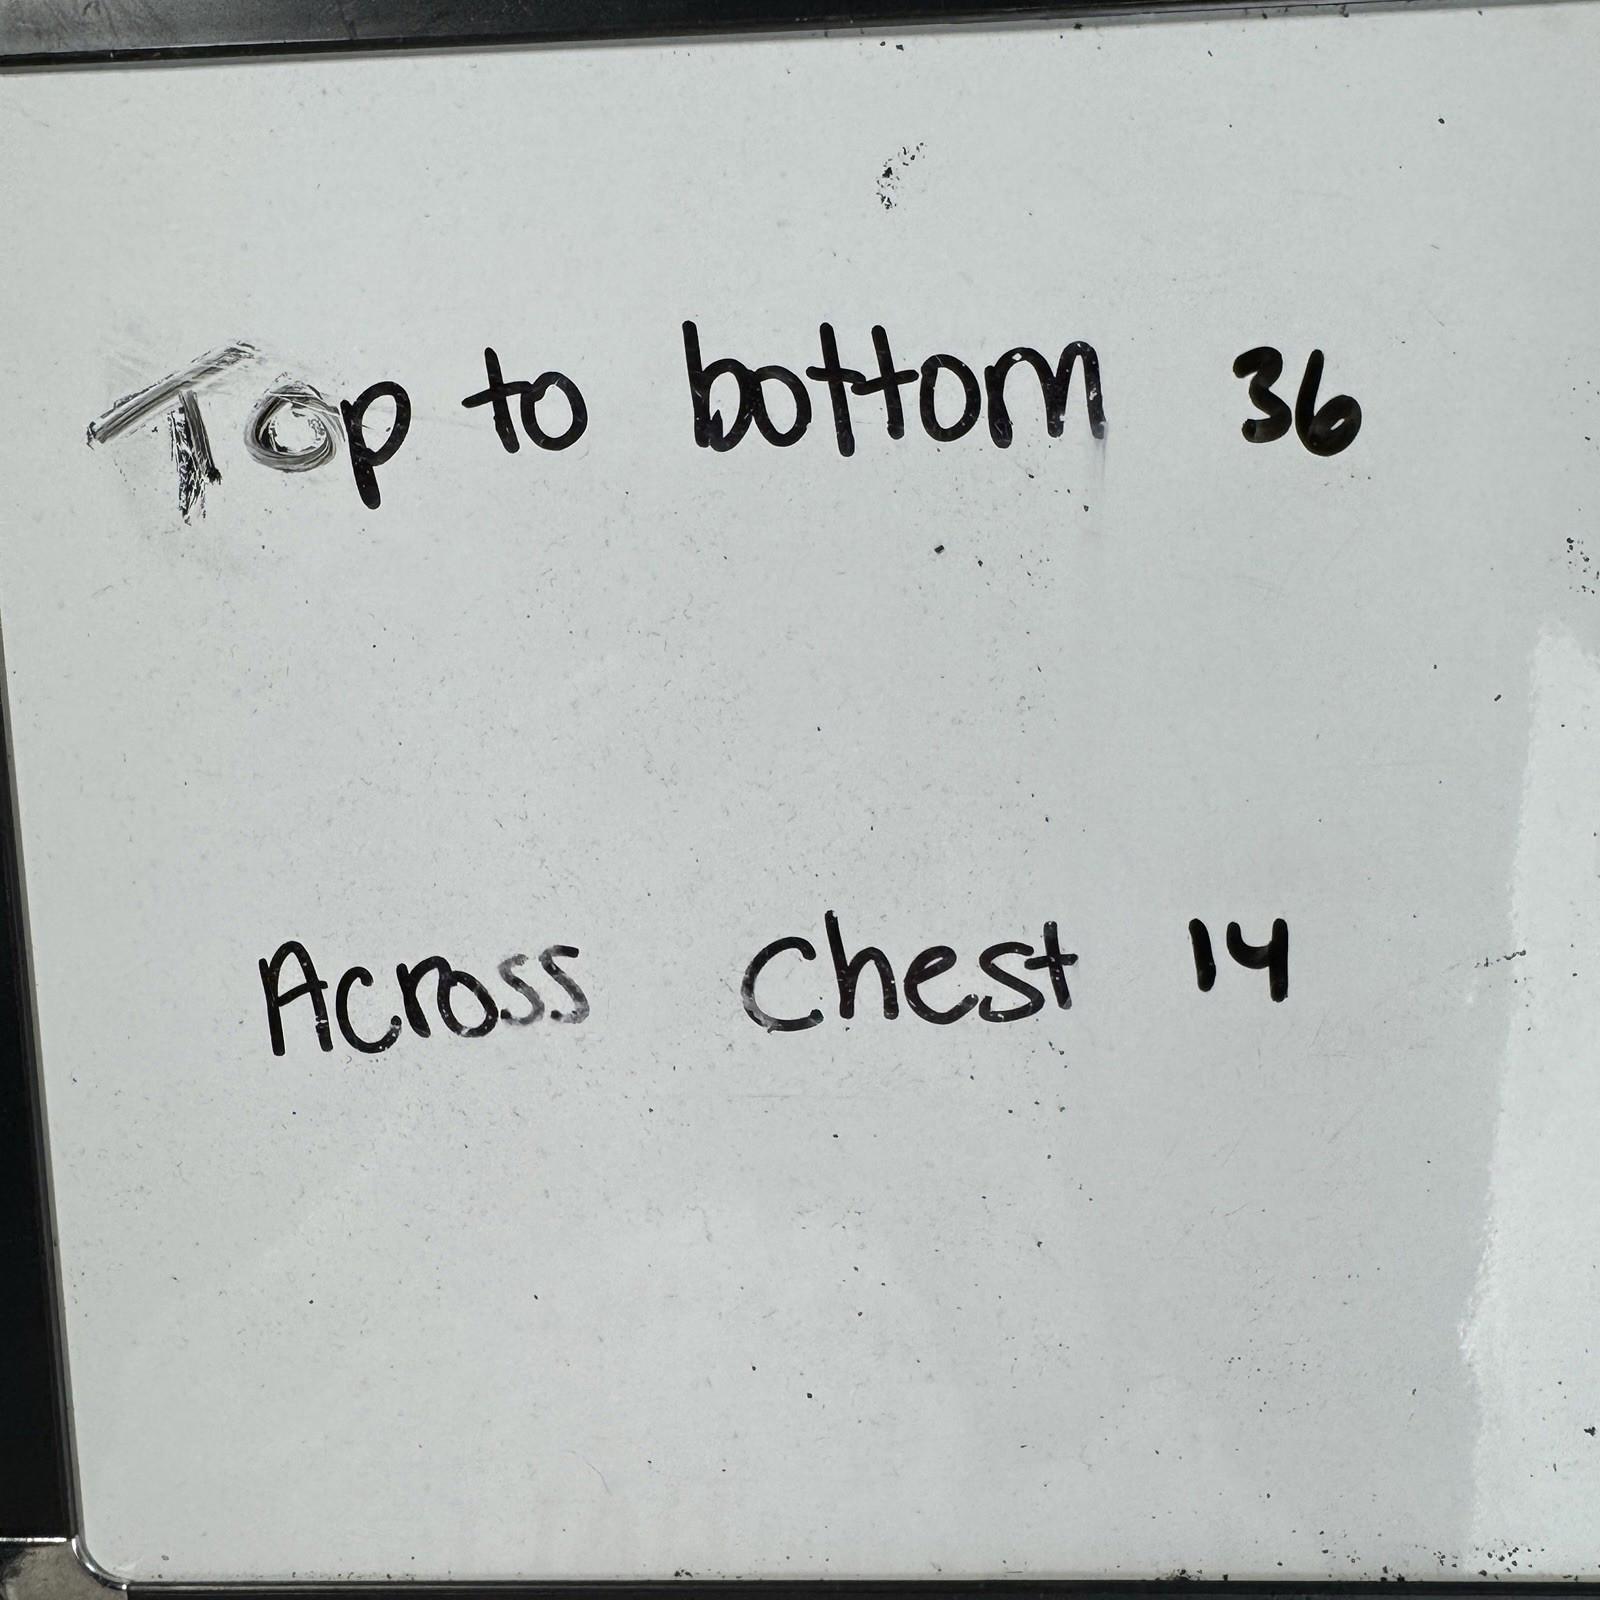 Top to bottom 36
Across chest 14